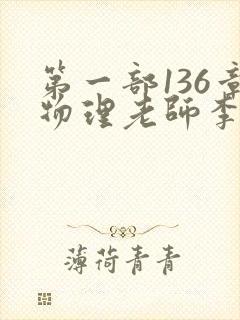 第一部136章
物理老師李
薄荷青青